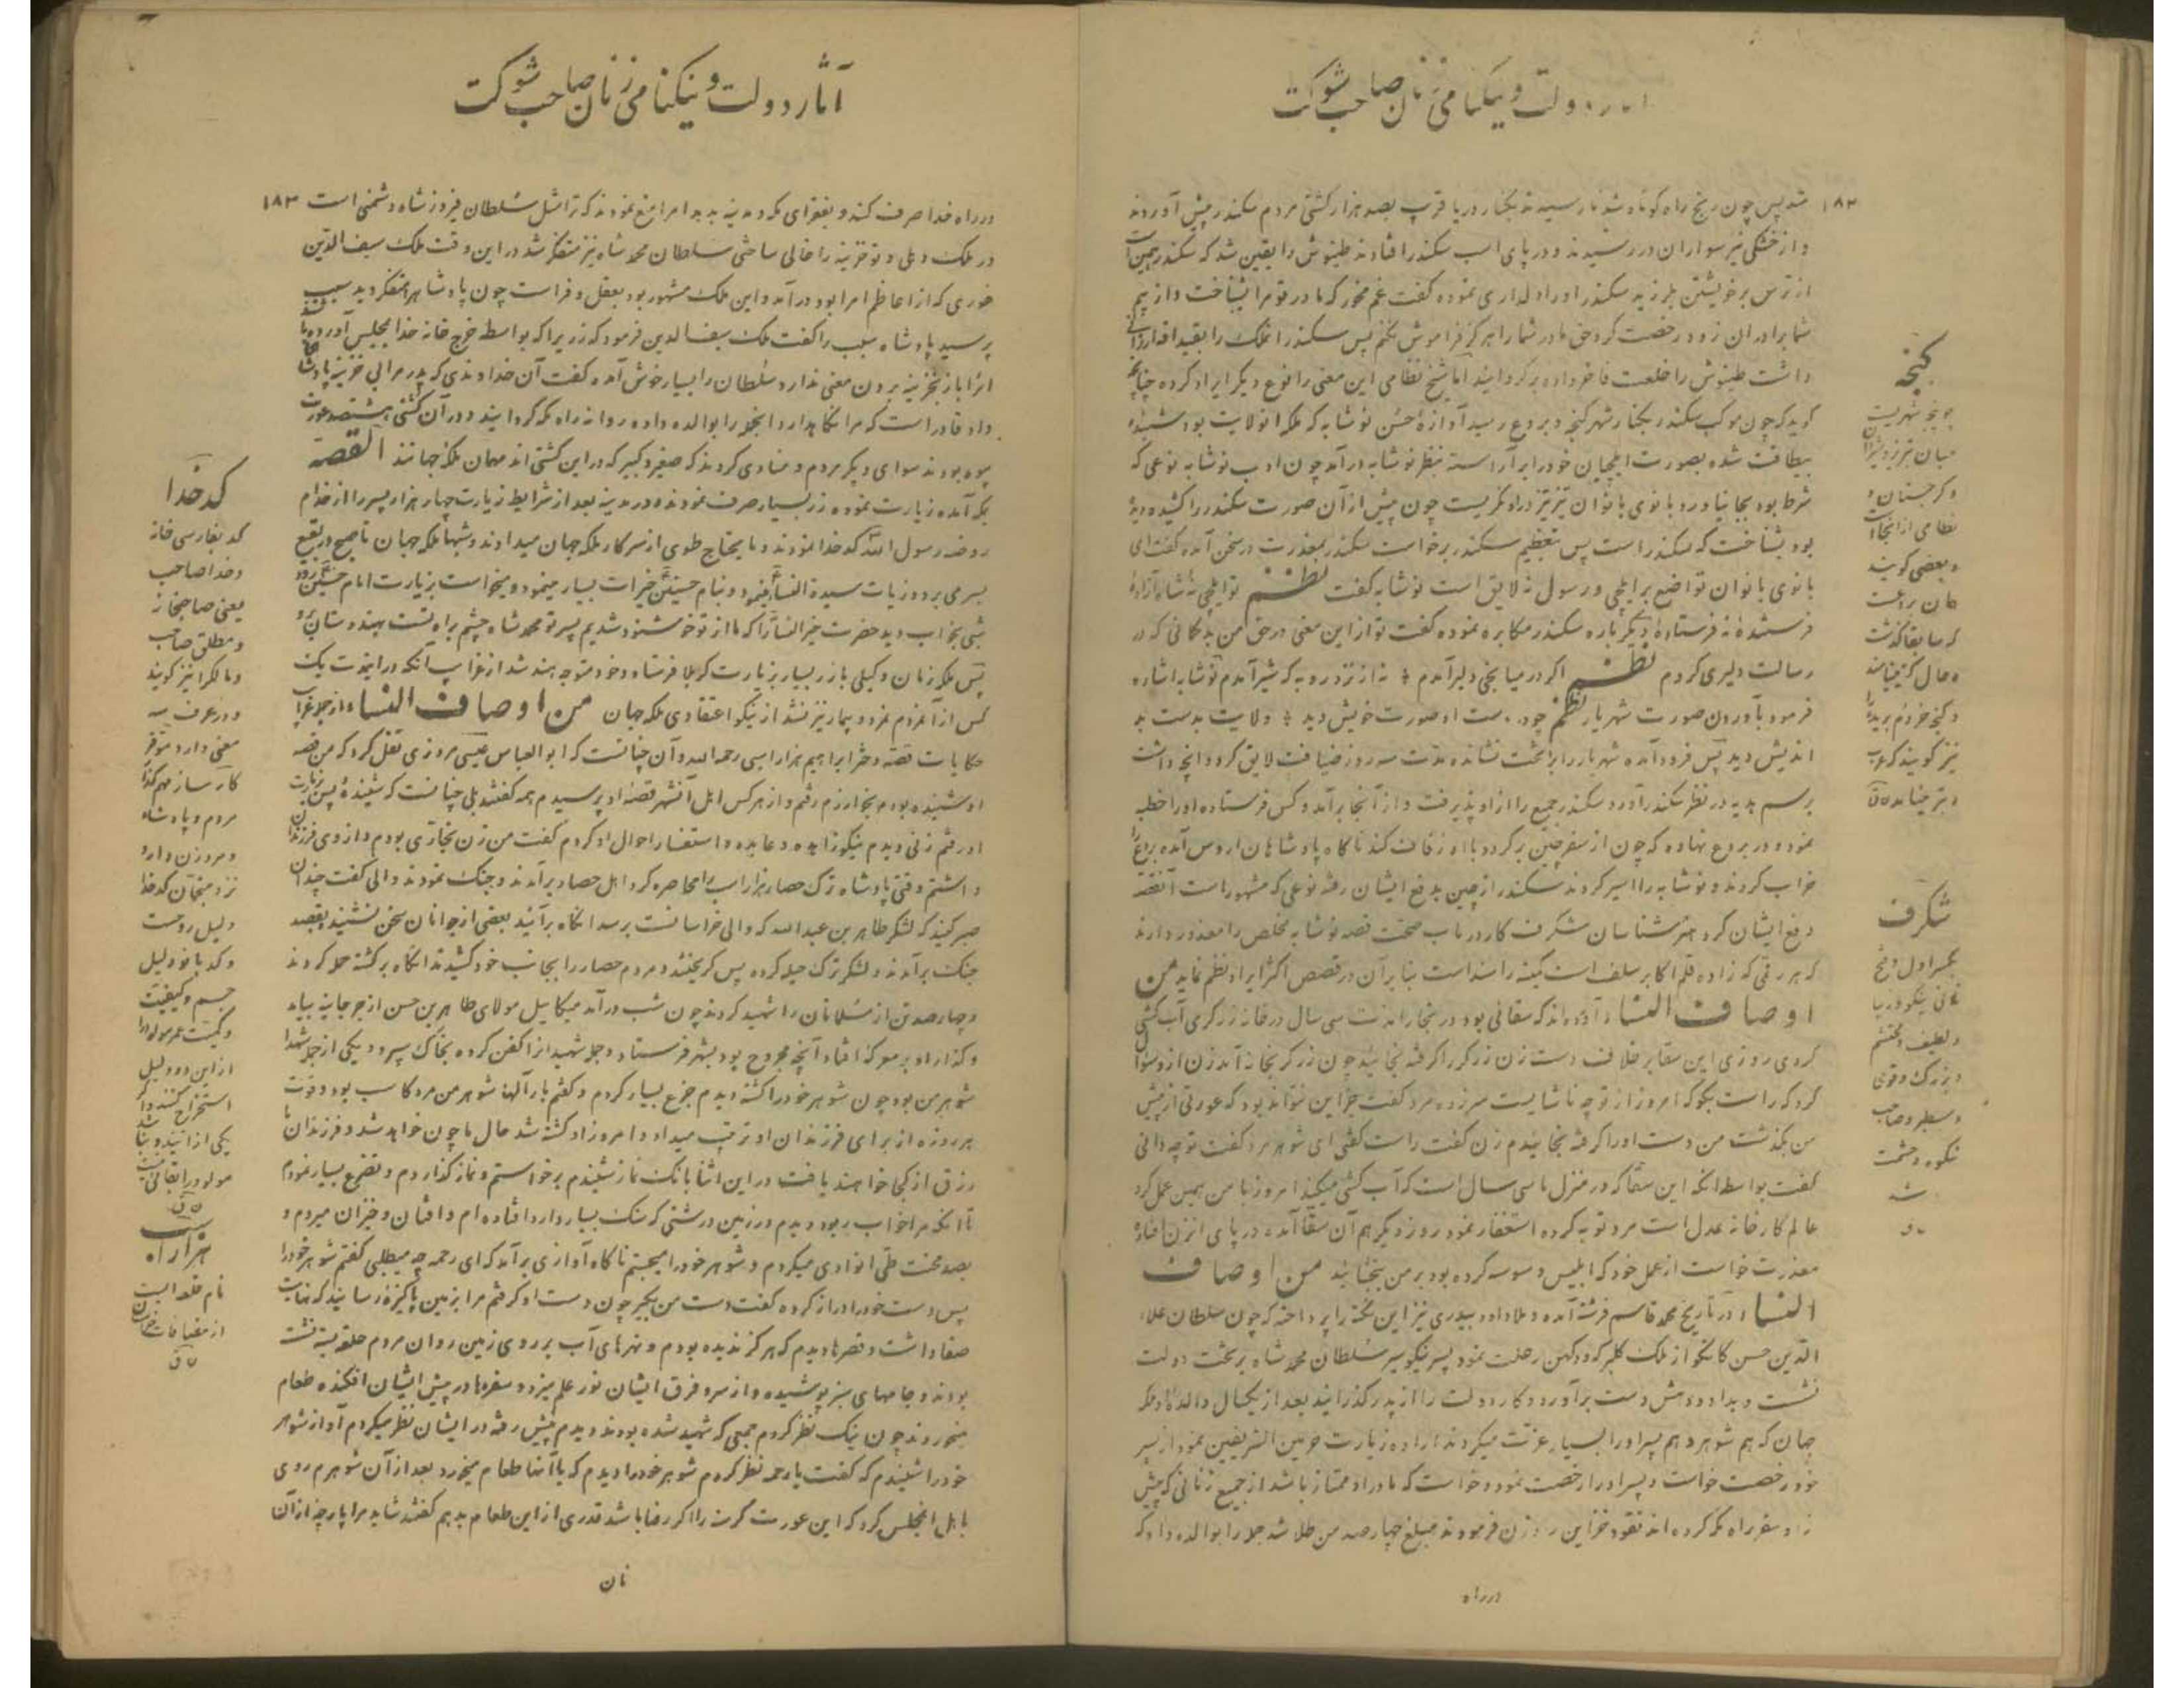 آثار دولت و نیکنامی زنان صاحب شوکت
۱۸۲
شد پس چون رنج راه کوتاه شد باز رسیدند بکنار دریا قرب بصد هزار کشتی مردم سکندر پیش آوردند
و از خشکی نیز سواران در رسیدند و در پای اسب سکندر افتادند طینوش را یقین شد که سکندر همین است
از ترس بر خویشتن بلرزید سکندر او را دلداری نموده گفت غم مخور که مادر تو مرا بشناخت و از بیم
شما برادران زود رخصت کرد حق مادر شما را هرگز فراموش نکنم پس سکندر آن ملک را بقید
داشت طینوش را خلعت فاخر داده برگردانید اما شیخ نظامی این معنی را نوع دیگر ایراد کرده چنانچه
گوید که چون موکب سکندر بکنار شهر گنجه و بردع رسید آوازهٔ حسن نوشابه که ملکه آنولایت بود شنیده
بیطاقت شده بصورت ایلچیان خود را بر آراسته بنظر نوشابه در آمد چون ادب نوشابه نوعی که
شرط بود بجا نیاورد بانوی بانوان تیز تیز در او نگریست چون پیش از آن صورت سکندر را کشیده دیده
بود بشناخت که سکندر است پس بتعظیم سکندر برخاست سکندر بمعذرت در سخن آمده گفت ای
بانوی بانوان تواضع بر ایلچی و رسول نه لایق است نوشابه گفت نظم تو ایلچی نهٔ شاه آزادهٔ
فرستندهٔ نه فرستادهٔ دیگر باره سکندر مکابره نموده گفت تو از این معنی در حق من بد گمانی که در
رسالت دلیری کردم نظم اگر در میانجی دلیر آمدم نه از نزد روبه که شیر آمدم نوشابه اشاره
فرمود بآوردن صورت شهریار نظم چو در دست او صورت خویش دید ولایت بدست بد
اندیش دید پس فرود آمده شهریار را بر تخت نشانده مدت سه روز ضیافت لایق کرد و آنچه داشت
برسم هدیه در نظر سکندر آورد سکندر جمیع را از او پذیرفت و از آنجا بر آمد و کس فرستاده او را خطبه
نمود و در بردع نهاده که چون از سفر چین برگردد با او زفاف کند ناگاه پادشاهان اروس آمده بردع را
خراب کردند و نوشابه را اسیر کردند سکندر از چین بدفع ایشان رفته نوعی که مشهور است آنقصه
دفع ایشان کرد هنر شناسان شگرف کار در باب صحت قصه نوشابه مخلص را معذور دارند
که هر رقمی که زادهٔ قلم اکابر سلف است کمینه را سند است بنا بر آن در قصص اکثر ایراد نظم نماید من
اوصاف النساء آورده اند که سقائی بود در بخارا مدت سی سال در خانه زرگری آب کشی
کردی روزی این سقا بر خلاف دست زن زرگر را گرفته بخائید چون زرگر بخانه آمد زن از او سؤال
کرد که راست بگو که امروز از تو چه ناشایست سر زده مرد گفت جز این نتواند بود که عورتی از پیش
من بگذشت من دست او را گرفته بخائیدم زن گفت راست گفتی ای شوهر مرد گفت تو چه دانی
گفت بواسطه آنکه این سقا که در منزل ما سی سال است که آب کشی میکند امروز با من همین عمل کرد
عالم کارخانه عدل است مرد توبه کرده استغفار نمود روز دیگر هم آن سقا آمده در پای آنزن افتاده
معذرت خواست از عمل خود که ابلیس وسوسه کرده بود بر من ببخشائید من اوصاف
النساء در تاریخ محمد قاسم فرشته آمده و ملا داود بیدری نیز این نکته را پرداخته که چون سلطان علاء
الدین حسن کانگو از ملک گلبرگه و دکهن رحلت نمود پسر نیکو سیر سلطان محمد شاه بر تخت دولت
نشست و بداد و دهش دست بر آورد و کار دولت را از پدر گذرانید بعد از یکسال والده او ملکه
جهان که هم شوهر و هم پسر او را بسیار عزت میکردند اراده زیارت حرمین الشریفین نمود از پسر
خود رخصت خواست و پسر او را رخصت نمود و خواست که مادر او ممتاز باشد از جمیع زنانی که پیش
زاد سفر راه مکه کرده اند نقود خزاین را وزن فرمودند مبلغ چهار صد من طلا شد جمله را بوالده داد که
در راه
گنجه
چو پنجه شهریست
میان تبریز و شیروان
و گرجستان و
نظامی از آنجا است
و بعضی گویند
همان بردعست
که سابقا گذشت
و حال گنجه
و گنجه
نیز گویند که
شگرف
بکسر اول و فتح
ثانی نیکو و زیبا
و لطیف و محتشم
و بزرگ و قوی
و سطبر و صاحب
شکوه و حشمت
باشد
آثار دولت و نیکنامی زنان صاحب شوکت
۱۸۳
در راه خدا صرف کند و بفقرای مکه و مدینه بدهد امرا منع نمودند که ترا مثل سلطان فیروز شاه دشمنی است
در ملک دهلی و تو خزینه را خالی ساختی سلطان محمد شاه نیز متفکر شد در این وقت ملک سیف الدین
غوری که از اعاظم امرا بود در آمد و این ملک مشهور بود بعقل و فراست چون پادشاه را متفکر دید سبب
پرسید پادشاه سبب را گفت ملک سیف الدین فرمود که زر برا که بواسطه خرج خانه خدا بمجلس آورده
آنرا باز بخزینه بردن معنی ندارد سلطان را بسیار خوش آمده گفت آن خداوندی که پدر مرا بی خزینه پادشاهی
داد قادر است که مرا نگاه دارد آنچه را بوالده داده روانه راه مکه گردانید و در آن کشتی هشتصد عورت
بیوه بودند سوای دیگر مردم و منادی کردند که صغیر و کبیر که در این کشتی اند مهمان ملکه جهانند القصه
بمکه آمده زیارت نموده زر بسیار صرف نمودند و در مدینه بعد از شرایط زیارت چهار هزار پسر را از خدام
روضه رسول الله کدخدا نمودند و مایحتاج طوی از سرکار ملکه جهان میدادند و شبها ملکه جهان تا صبح در بقیع
بسر می برد و زیارت سیدة النساء مینمود و بنام حسنین خیرات بسیار مینمود و میخواست بزیارت امام حسین رود
شبی بخواب دید حضرت خیر النساء را که ما از تو خوشنود شدیم پسر تو محمد شاه چشم براه تست بهندوستان برو
پس ملکه زنان وکیلی با زر بسیار بزیارت کربلا فرستاد و خود متوجه هند شد از غرایب آنکه در این مدت یک
کس از آنمردم نمرد و بیمار نیز نشد از نیکو اعتقادی ملکه جهان من اوصاف النساء از جمله غرایب
حکایات قصه دختر ابراهیم هزاراسبی رحمه الله و آن چنانست که ابوالعباس عیسی مروزی نقل کرد که من قصه
او شنیده بودم بخوارزم رفتم و از هر کس اهل آنشهر قصه او پرسیدم همه گفتند بلی چنانست که شنیدهٔ پس بزیارت
او رفتم زنی دیدم نیکو زاهده و عابده و استفسار احوال او کردم گفت من زن نجاری بودم و از وی فرزندان
داشتم وقتی پادشاه ترک حصار هزاراسب را محاصره کرد اهل حصار بر آمدند و جنگ نمودند والی گفت چندان
صبر کنید که لشکر طاهر بن عبدالله که والی خراسانست برسد آنگاه بر آئید بعضی از جوانان سخن نشنیدند بقصد
جنگ بر آمدند و لشکر ترک حیله کرده پس گریختند و مردم حصار را بجانب خود کشیدند آنگاه برگشته حمله کردند
و چهار صد تن از مسلمانان را شهید کردند چون شب در آمد میکاییل مولای طاهر بن حسن از جرجانیه بیامد
و گذار او بر معرکه افتاد آنچه مجروح بود بشهر فرستاد و جمله شهیدانرا کفن کرده بخاک سپرد و یکی از جمله شهدا
شوهر من بود چون شوهر خود را کشته دیدم جزع بسیار کردم و گفتم بار الها شوهر من مرد کاسب بود و قوت
هر روزه از برای فرزندان او ترتیب میداد و امروز او کشته شد حال ما چون خواهد شد و فرزندان ما
رزق از کجا خواهند یافت در این اثنا بانگ نماز شنیدم برخواستم و نماز گذاردم و تضرع بسیار نمودم
تا آنکه مرا خواب ربود دیدم در زمین درشتی که سنگ بسیار دارد افتاده ام و افتان و خیزان میروم و
بصد محنت طی آنوادی میکردم و شوهر خود را میجستم ناگاه آوازی بر آمد که ای رحمه چه میطلبی گفتم شوهر خود را
پس دست خود را دراز کرده گفت دست من بگیر چون دست او گرفتم مرا بزمین پاکیزه رسانید که نهایت
صفا داشت و قصرها دیدم که هرگز ندیده بودم و نهرهای آب بر روی زمین روان مردم حلقه بسته نشسته
بودند و جامهای سبز پوشیده و از سر و فرق ایشان نور علم میزد و سفره ها در پیش ایشان افکنده طعام
میخوردند چون نیک نظر کردم جمعی که شهید شده بودند دیدم پیش رفته در ایشان نظر میکردم آواز شوهر
خود را شنیدم که گفت یا رحمه نظر کردم شوهر خود را دیدم که با آنها طعام میخورد بعد از آن شوهرم روی
باهل آنمجلس کرد که این عورت گرسنه را اگر رضا باشد قدری از این طعام بدهم گفتند شاید مرا پارچه از آن
نان
کدخدا
کد بفارسی خانه
و خدا صاحب
یعنی صاحبخانه
و مطلق صاحب
و مالک را نیز گویند
و در عرف سه
معنی دارد موقر
کارساز مهم گذار
مردم و پادشاه
و مرد زن دار و
نزد منجمان کدخدا
دلیل روحست
و کدبانو دلیل
جسم و کیفیت
و کمیت عمر مولود را
از این دو دلیل
استخراج کنند و اگر
یکی از این دو نباشد
مولود را بقائی نیست
هزار اسب
نام قلعه ایست
از مضافات